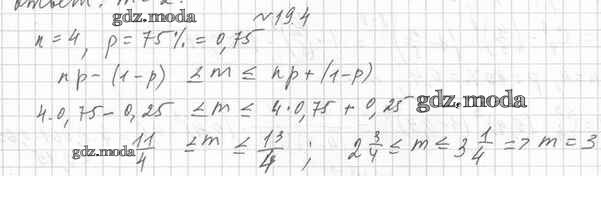 ответ: m = 2.
gdz.moda
№19.4
n = 4, p = 75% = 0,75
np - (1-p) ≤ m ≤ np + (1-p)
4·0,75 - 0,25 ≤ m ≤ 4·0,75 + 0,25
gdz.moda
11/4 ≤ m ≤ 13/4 ; 2 3/4 ≤ m ≤ 3 1/4 => m = 3
gdz.moda